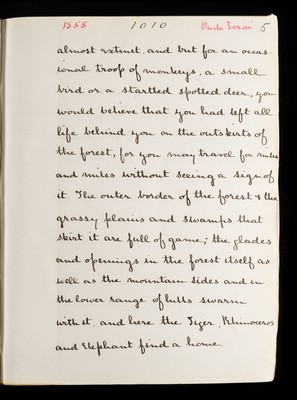 1855 1010 5
almost extinct, and but for an occas-
ional troop of monkeys, a small
bird or a startled spotted deer, you
would believe that you had left all
life behind you on the outskirts of
the forest, for you may travel for miles
and miles without seeing a sign of
it. The outer border of the forest & the
grassy plains and swamps that
skirt it are full of game; the glades
and openings in the forest itself as
well as the mountain sides and in
the lower range of hills swarm
with it, and here the Tiger, Rhinoceros
and Elephant find a home.